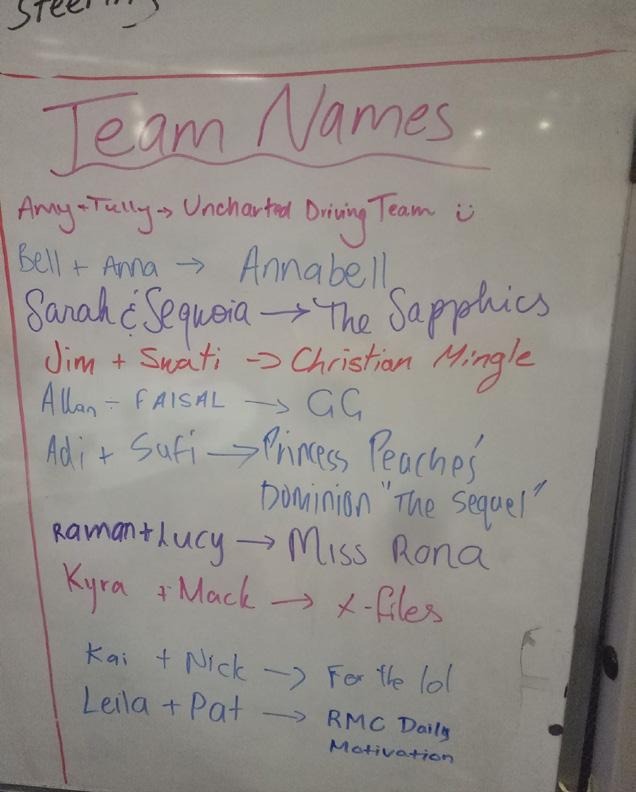 Steering
Team Names
Amy + Tully → Uncharted Driving Team ü
Bell + Anna → Annabell
Sarah & Sequoia → The Sapphics
Jim + Swati → Christian Mingle
Allan - FAISAL → GG
Adi + Sufi → Princess Peaches'
Dominion "The Sequel"
Raman + Lucy → Miss Rona
Kyra + Mack → X-files
Kai + Nick → For the lol
Leila + Pat → RMC Daily
Motivation